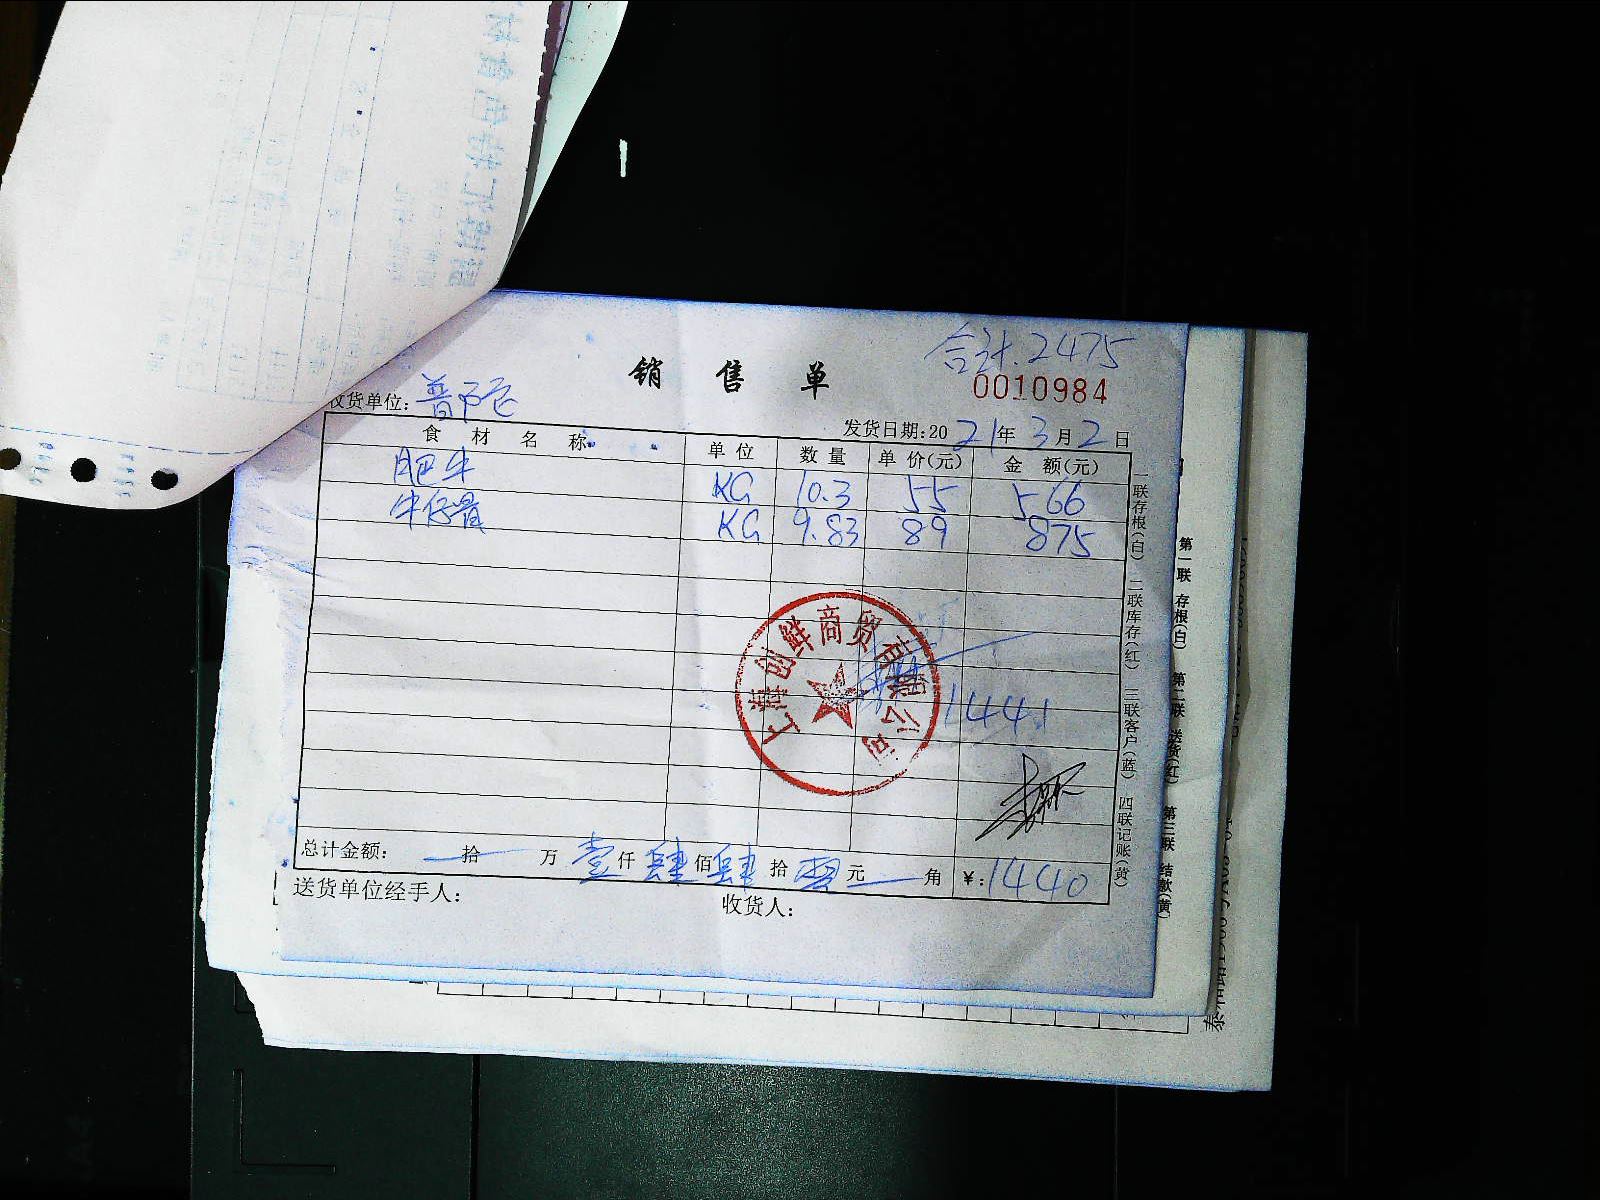 合计.2475
销售单
0010984
收货单位:
发货日期:2021年3月2日
食材名称 单位 数量 单价(元) 金额(元)
肥牛 KG 10.3 55 566
牛仔骨 KG 9.83 89 875
上海创鲜商贸有限公司
1441
总计金额: 拾 万 壹仟肆佰肆拾零元 角 ¥:1440
送货单位经手人: 收货人:
一联存根(白) 二联库存(红) 三联客户(蓝) 四联记账(黄)
第一联 存根(白) 第二联 送货(红) 第三联 结款(黄)